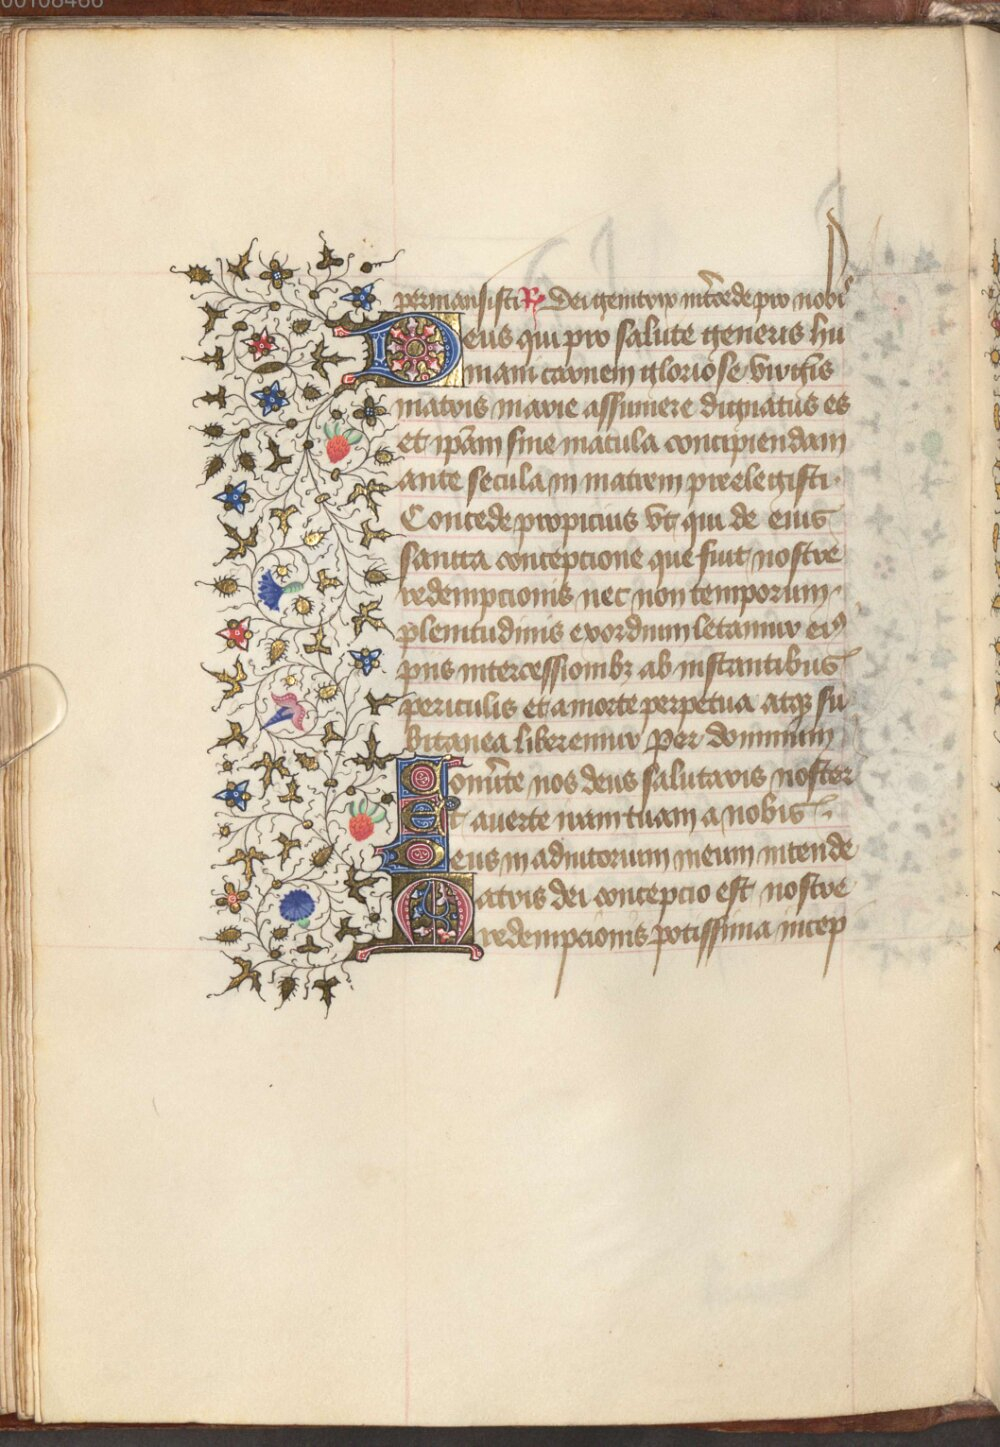 00108466
permansisti R Dei genitrix int̄cede pro nobis
Deus qui pro salute generis hu
mani carnem gloriose virginis
matris marie assumere dignatus es
et ip̄am sine macula concipiendam
ante secula in matrem preelegisti.
Concede propicius vt qui de eius
sancta conceptione que fuit nostre
redempcionis nec non temporum
plenitudinis exordium letamur eiꝰ
piis intercessionibꝫ ab instantibus
periculis et a morte perpetua atqꝫ su
bitanea liberemur Per dominum
Conu̾te nos deus salutaris noster
Et auerte iram tuam a nobis .
Deus in adiutorium meum intende
Matris dei concepcio est nostre
redempcionis potissima incep